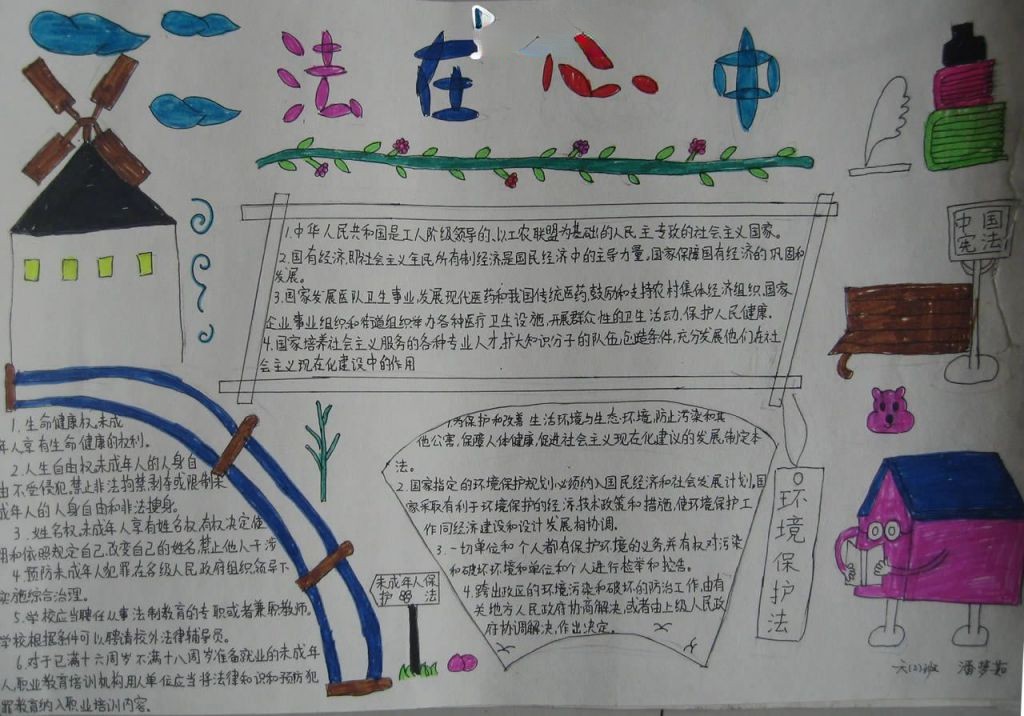 法在心中
中国
宪法
1.中华人民共和国是工人阶级领导的、以工农联盟为基础的人民主专政的社会主义国家。
2.国有经济,即社会主义全民所有制经济是国民经济中的主导力量,国家保障国有经济的巩固和
发展。
3.国家发展医队卫生事业,发展现代医药和我国传统医药,鼓励和支持农村集体经济组织、国家
企业事业组织和街道组织举办各种医疗卫生设施,开展群众性的卫生活动,保护人民健康。
4.国家培养社会主义服务的各种专业人才,扩大知识分子的队伍,创造条件,充分发展他们在社
会主义现在化建设中的作用
1.生命健康权,未成
年人享有生命健康的权利。
2.人生自由权,未成年人的人身自
由不受侵犯,禁止非法拘禁剥夺或限制未
成年人的人身自由和非法搜身。
3.姓名权,未成年人享有姓名权,有权决定使
用和依照规定自己,改变自己的姓名,禁止他人干涉
4.预防未成年人犯罪在各级人民政府组织领导下
实施综合治理。
5.学校应当聘任从事法制教育的专职或者兼职教师。
学校根据条件可以聘请校外法律辅导员。
6.对于已满十六周岁不满十八周岁准备就业的未成年
人,职业教育培训机构,用人单位应当将法律知识和预防犯
罪教育纳入职业培训内容。
未成年人保
护法
1.为保护和改善生活环境与生态环境,防止污染和其
他公害,保障人体健康,促进社会主义现在化建议的发展,制定本
法。
2.国家指定的环境保护规划必须纳入国民经济和社会发展计划,国
家采取有利于环境保护的经济、技术政策和措施,使环境保护工
作同经济建设和设计发展相协调。
3.一切单位和个人都有保护环境的义务,并有权对污染
和破坏环境和单位和个人进行检举和抢告。
4.跨出政区的环境污染和破坏的防治工作,由有
关地方人民政府协商解决,或者由上级人民政
府协调解决,作出决定。
环境保护法
六(2)班 潘梦茹